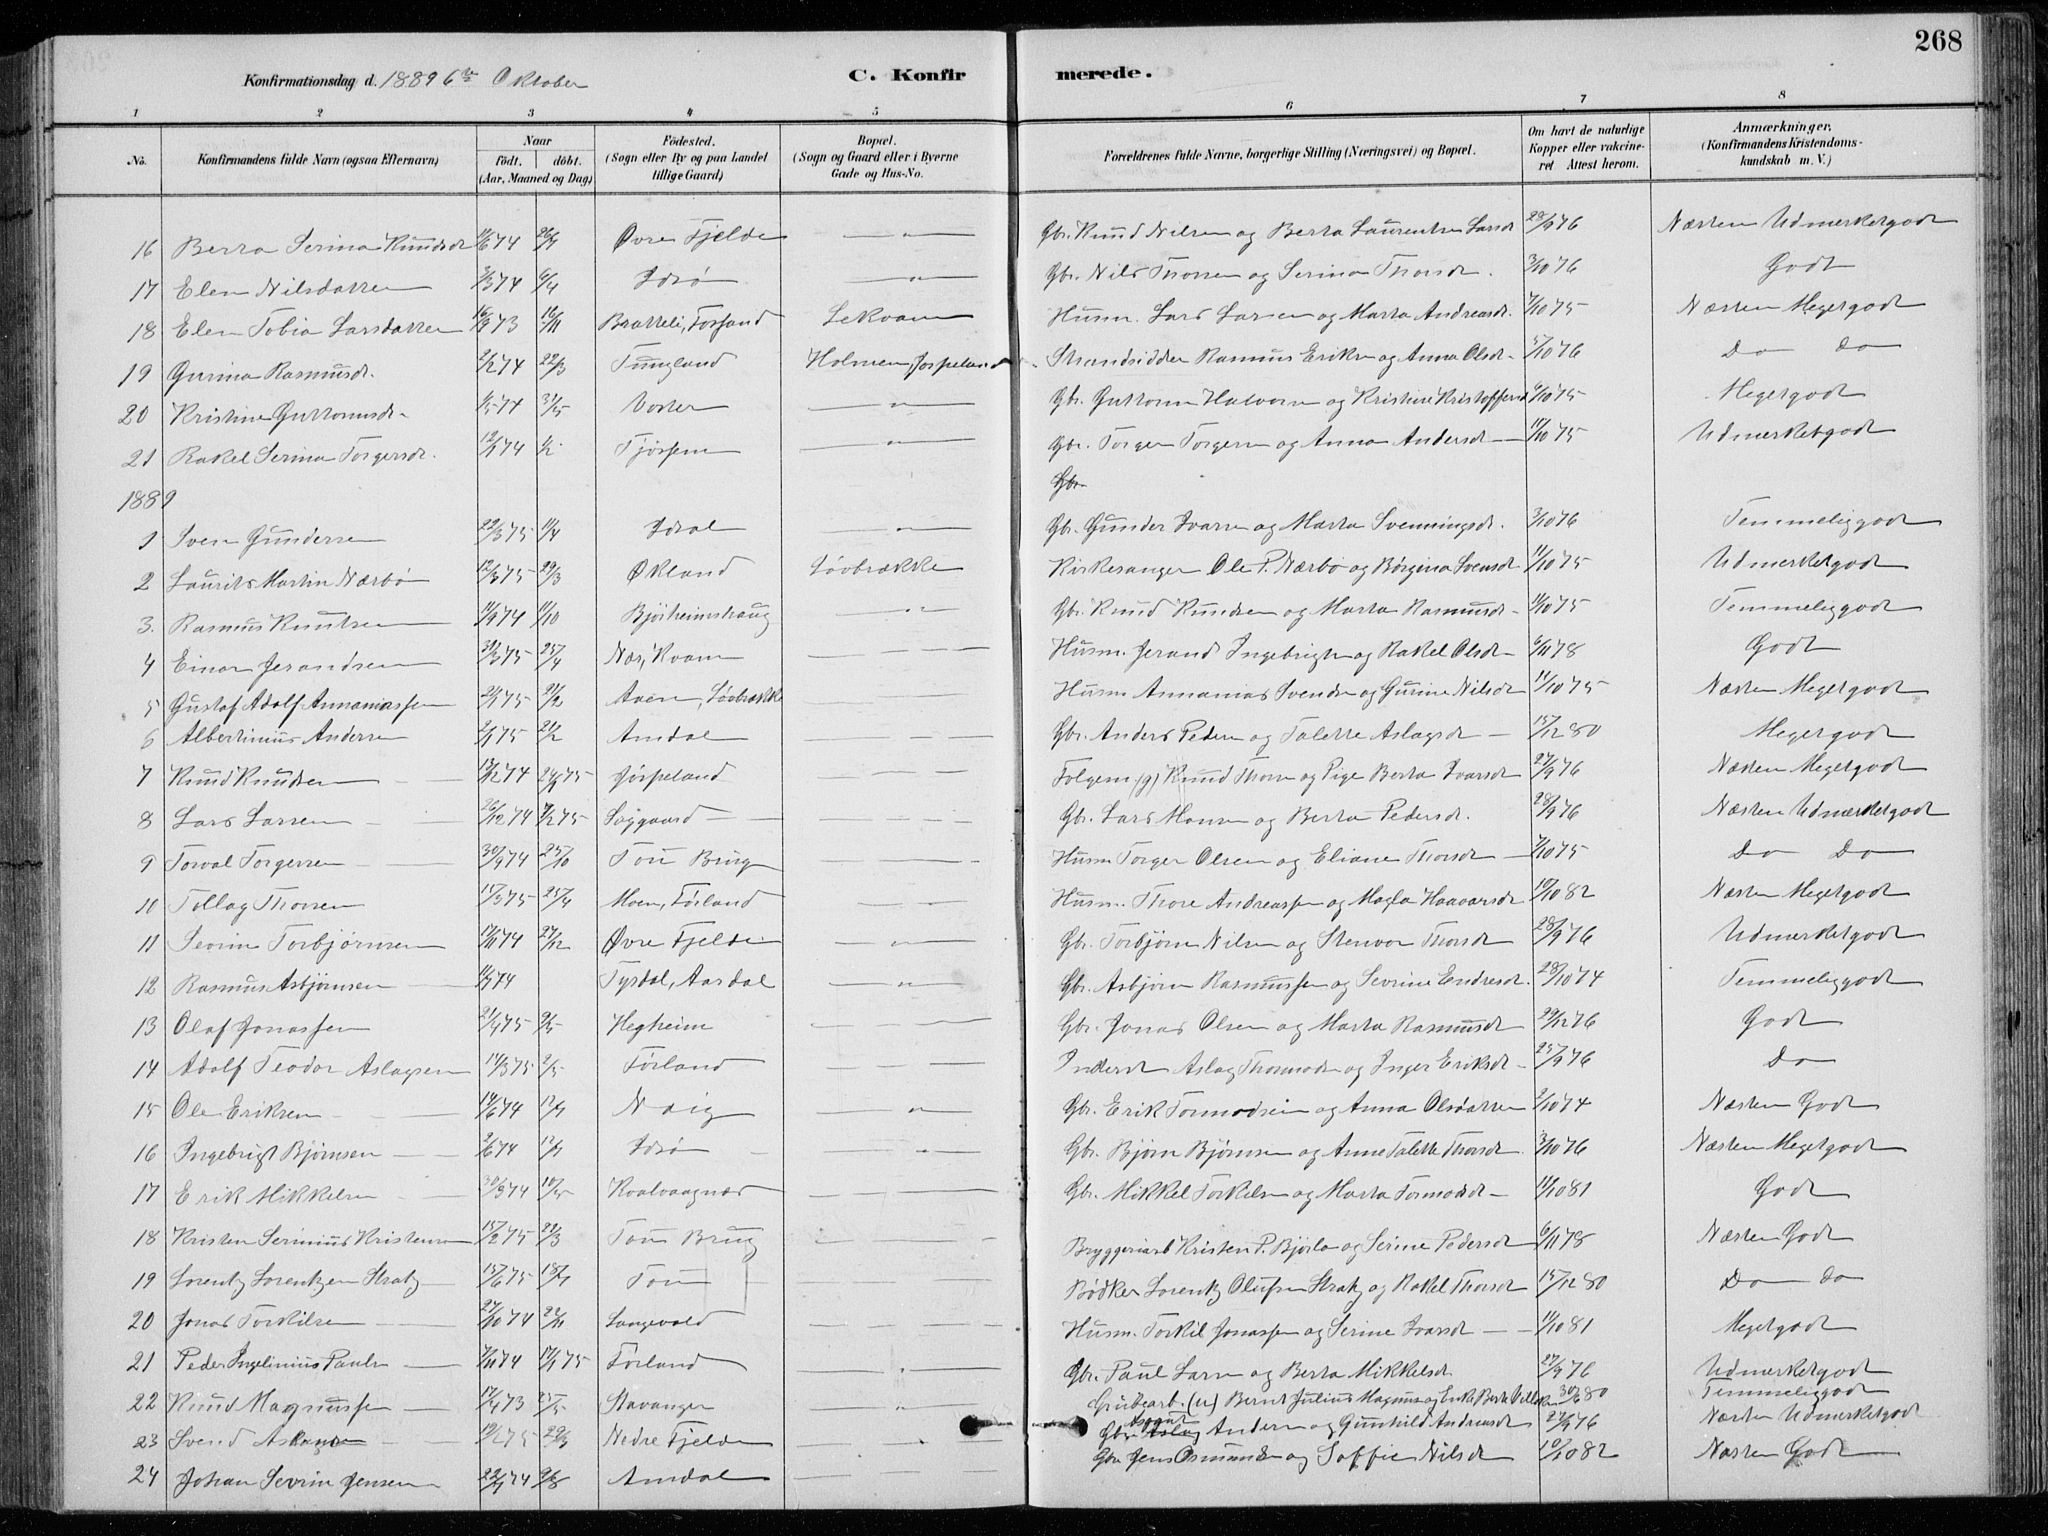 268
Konfirmationsdag d. 1889 6te Oktober C. Konfirmerede.
1 2 3 4 5 6 7 8
No. Konfirmandens fulde Navn (ogsaa Efternavn) Naar født. døbt. (Aar, Maaned og Dag) Fødested. (Sogn eller By og paa Landet tillige Gaard) Bopæl. (Sogn og Gaard eller i Byerne Gade og Hus-No. Forældrenes fulde Navne, borgerlige Stilling (Næringsvei) og Bopæl. Om havt de naturlige Kopper eller vakcineret Attest herom. Anmærkninger. (Konfirmandens Kristendomskundskab m. V.)
16 Berta Serina Knudsdt 11/6 74 26/7 Øvre Fjelde — " — Gbr. Knud Nilsen og Berta Laurentse Larsdt 28/9 76 Næsten Udmerketgodt
17 Elen Nilsdatter 3/3 74 6/4 Idsø — " — Gbr. Nils Thorsen og Serina Thorsdt. 3/10 76 Godt
18 Elen Tobia Larsdatter 16/9 73 16/11 Bratteli, Fossand Lekvam Husm. Lars Larsen og Marta Andreasdt. 7/10 75 Næsten Megetgodt
19 Gurina Rasmusdt. 2/2 74 22/3 Tungland Holmen, Jørpeland Strandsidder Rasmus Eriksen og Anna Olsdt. 5/10 76 Do Do
20 Kristine Guttormsdt. 1/5 74 31/5 Voster — " — Gbr. Guttorm Halvorsen og Kristine Kristoffersdt 4/10 75 Megetgodt
21 Rakel Serina Torgersdt. 12/1 74 1/2 Fjøssene — " — Gbr. Torger Torgersen og Anna Andersdt 11/10 75 Udmerketgodt
1889 Gbr.
1 Sven Gundersen 22/3 75 11/4 Idsal — " — Gbr. Gunder Ivarsen og Marta Svenningsdt. 3/10 76 Temmeliggodt
2 Laurits Martin Nærbø 12/3 75 29/3 Økland Løvbrække Kirkesanger Ole P. Nærbø og Børgina Svensdt 11/10 75 Udmerketgodt
3. Rasmus Knutsen 11/9 74 11/10 Bjørheimshaug — " — Gbr. Knud Knudsen og Marta Rasmusdt 11/10 75 Temmeliggodt
4 Einar Jerandsen 29/3 75 25/4 Næs, Kvam Husm. Jerand Ingebrigtsen og Rakel Olsdt 6/11 78 Godt
5 Gustaf Adolf Annaniassen 21/1 75 21/2 Aaen, Løvbrække Husm Annanias Svendsen og Gurine Nilsdt 11/10 75 Næsten Megetgodt
6 Albertinius Andersen 2/1 75 21/2 Amdal Gbr. Anders Pedersen og Talette Aslagsdt 15/12 80 Megetgodt
7 Knud Knudsen 13/12 74 24/1 75 Jørpeland Knud Thorsen og Pige Berta Ivarsdt 27/9 76 Næsten Megetgodt
8 Lars Larsen 26/12 74 7/2 75 Gbr. Lars Monsen og Berta Pedersdt. 28/9 76 Næsten Udmærketgodt
9 Torval Torgersen 30/9 74 25/10 Tou Brug Husm Torger Olsen og Eliane Thorsdt 7/10 75 Do Do
10 Tollag Thorsen 15/3 75 25/4 Moen, Førland Husm. Thore Andreassen og Magla Haavarsdt 10/10 82 Næsten Megetgodt
11 Sevrin Torbjørnsen 17/11 74 27/12 Øvre Fjelde — " — Gbr. Torbjørn Nilsen og Stenvor Thorsdt 28/9 76 Udmerketgodt
12 Rasmus Asbjørnsen 11/7 74 Tysdal, Aasdal — " — Gbr. Asbjørn Rasmussen og Sevrine Endresdt. 28/10 74 Temmeliggodt
13 Olaf Jonassen 21/4 75 9/5 Hegheim Gbr. Jonas Olsen og Marta Rasmusdt 29/12 76 Godt
14 Adolf Teodor Aslagsen 14/3 75 2/5 Førland Inderst Aslag Thormodsen og Inger Eriksdt 25/9 76 Do
15 Ole Eriksen 14/6 74 12/7 Nag — " — Gbr. Erik Tormodsen og Anna Olsdatter 2/10 74 Næsten Godt
16 Ingebrigt Bjørnsen 2/6 74 12/7 Idsø — " — Gbr. Bjørn Bjørnsen og Anne Talette Thorsdt. 3/10 76 Næsten Megetgodt
17 Erik Mikkelsen 30/3 74 10/5 Kvalvaagnæs — " — Gbr. Mikkel Torkelsen og Marta Tormodsdt 11/10 81 Godt
18 Kristen Serinius Kristensen 15/2 75 29/3 Tou Brug Bryggeriarb Kristen P. Bjørlo og Serine Pedersdt 6/11 78 Næsten Godt
19 Lorentz Lorentzen Stratz 15/6 75 18/7 Tou Bødker Lorentz Olufsen Stratz og Rakel Thorsdt 15/12 80 Do Do
20 Jonas Torkilsen 27/10 74 22/11 Langevold Husm. Torkil Jonassen og Serine Ivarsdt 11/10 81 Megetgodt
21 Peder Ingelinius Paulsen 7/11 74 17/1 75 Førland — " — Gbr. Paul Larsen og Berta Mikkelsdt 27/9 76 Udmerketgodt
22 Knud Magnussen 17/4 73 25/5 Stavanger — " — Grubearb. (u) Bernt Julius Magnus og Enke Berta 30/6 80 Temmeliggodt
23 Svend 19/2 75 29/3 Nedre Fjelde — " — Gbr. Andersen og Gunhild Andreasdt 27/9 76 Næsten Udmerketgodt
24 Johan Sevrin Jensen 22/7 74 9/8 Amdal Gbr Jens Osmundsen og Soffie Nilsdt 10/10 82 Næsten Godt